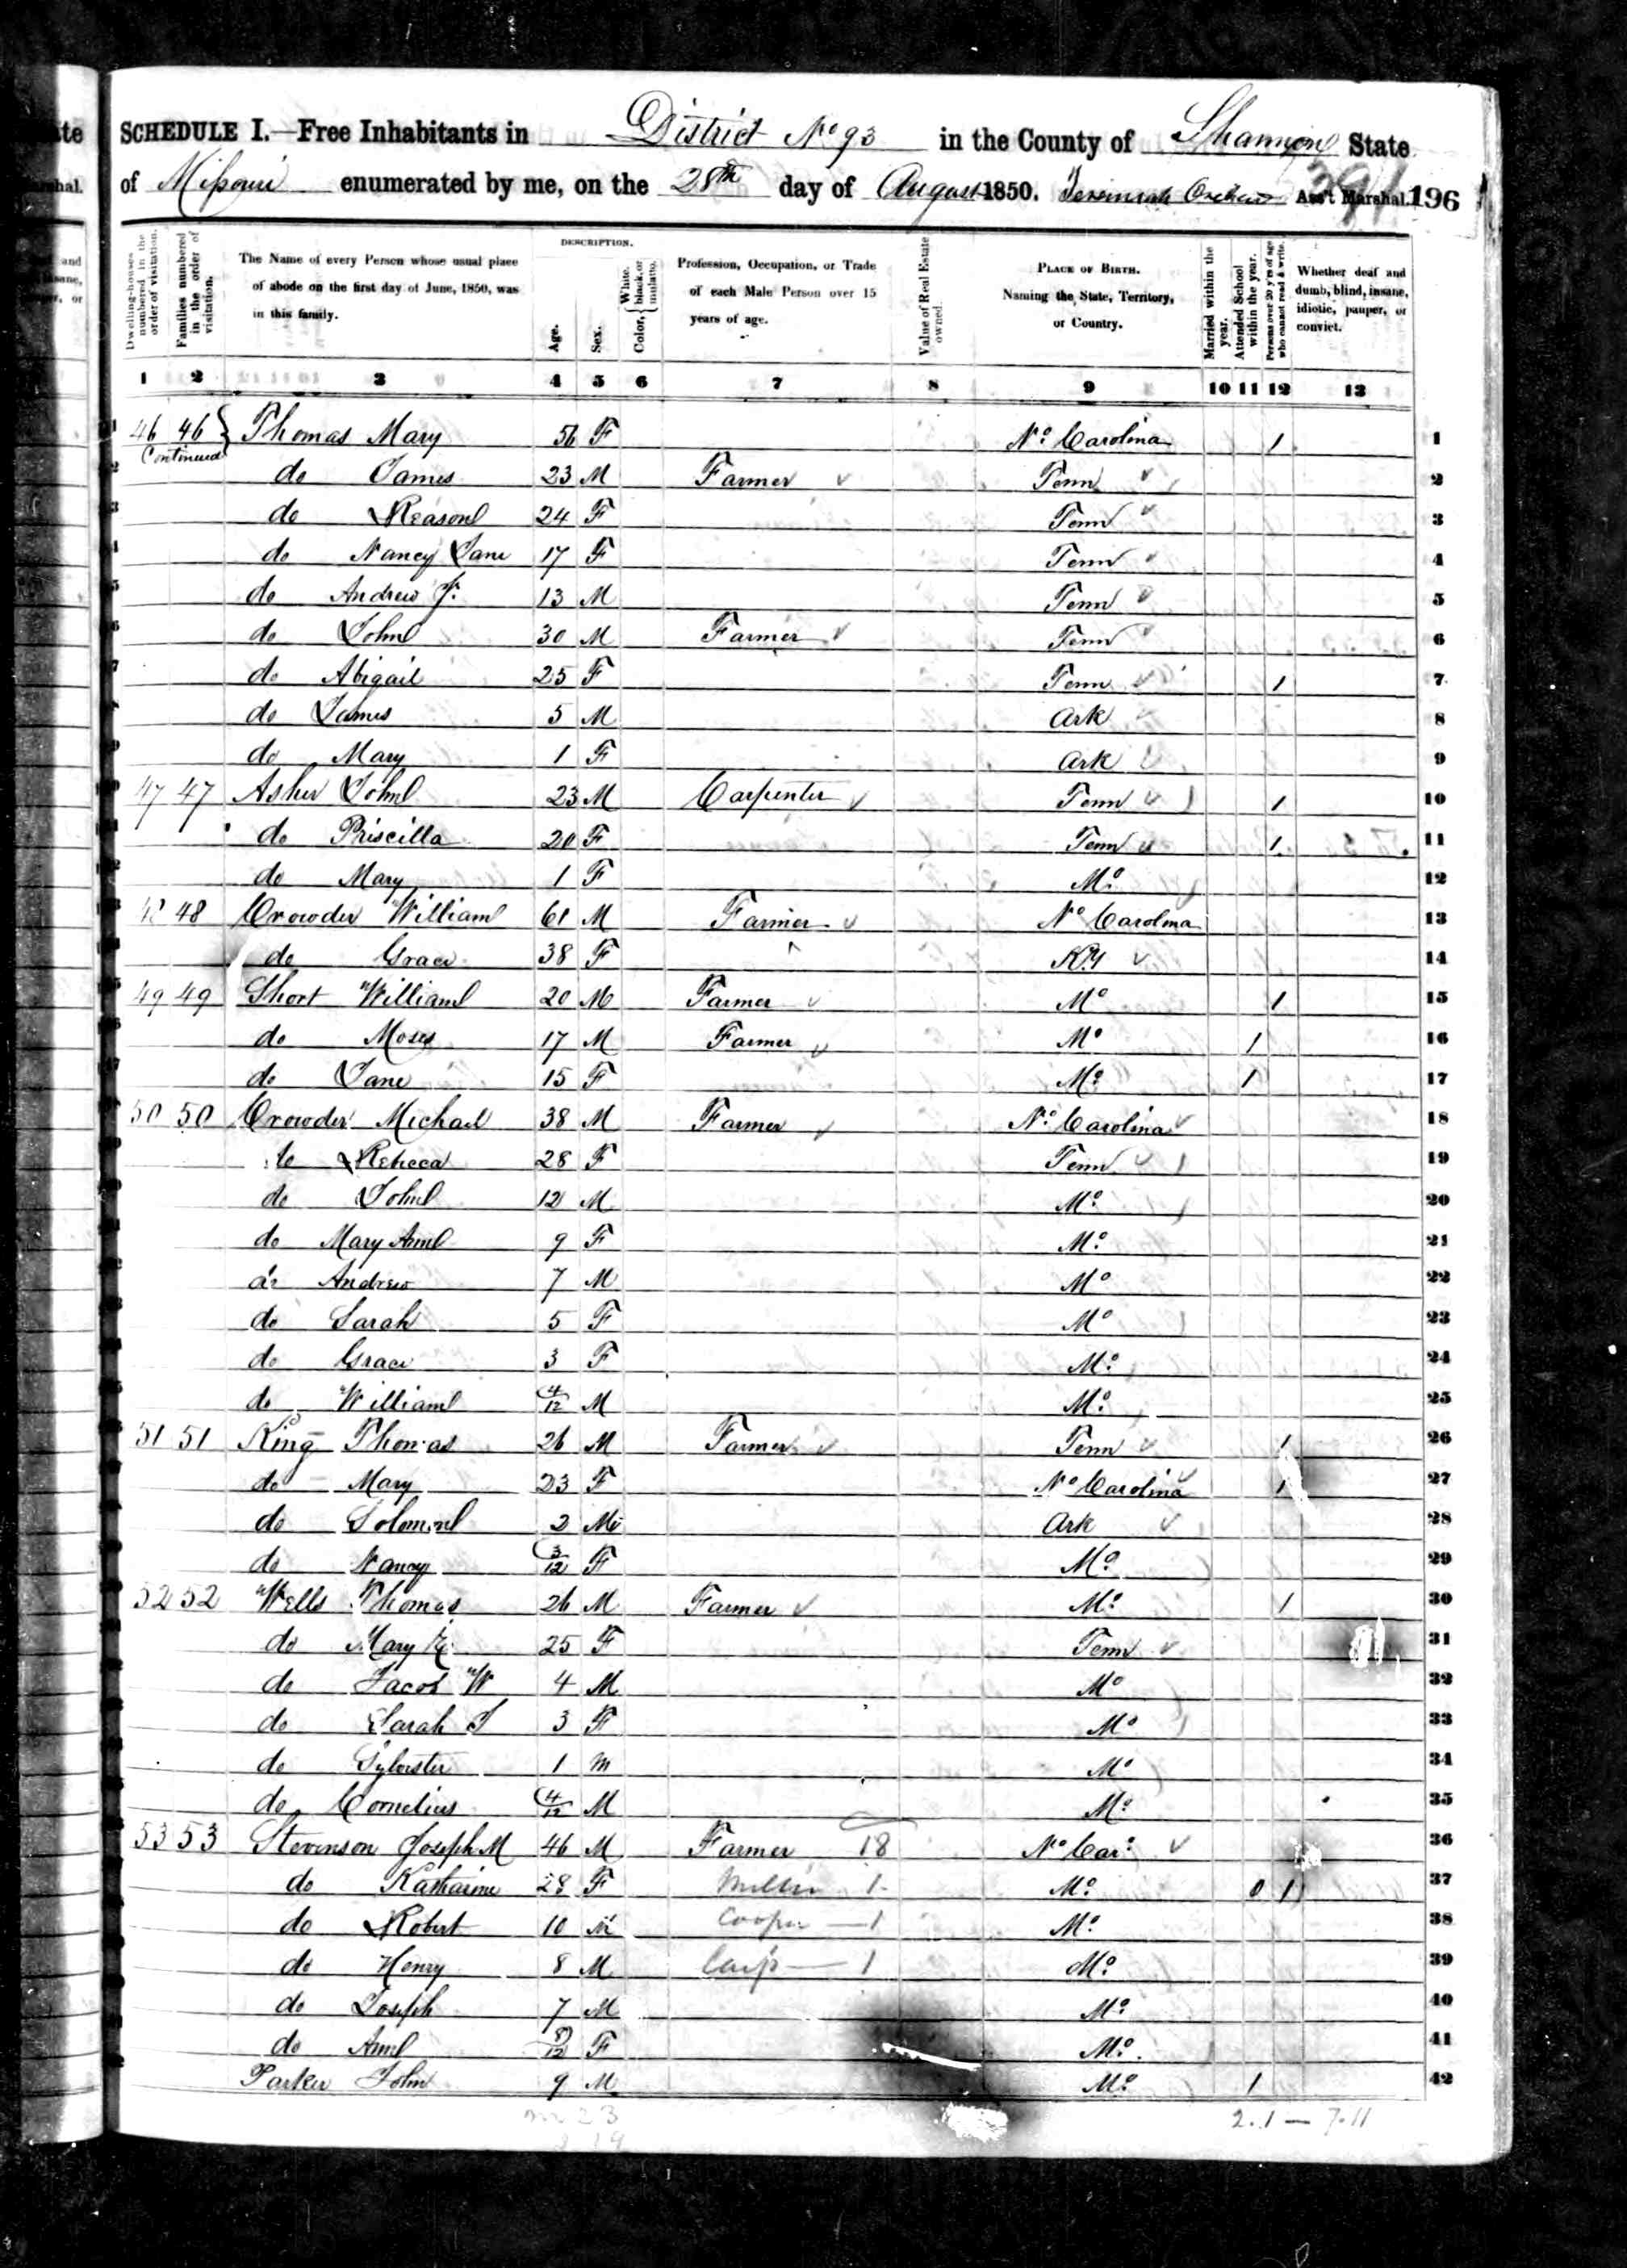 SCHEDULE I.—Free Inhabitants in District No 93 in the County of Shannon State
of Missouri enumerated by me, on the 28th day of August 1850. Jeremiah Ass't Marshal. 196
Dwelling-houses numbered in the order of visitation.
Families numbered in the order of visitation.
The Name of every Person whose usual place of abode on the first day of June, 1850, was in this family.
DESCRIPTION.
Age.
Sex.
Color, { White, black, or mulatto.
Profession, Occupation, or Trade of each Male Person over 15 years of age.
Value of Real Estate owned.
PLACE OF BIRTH. Naming the State, Territory, or Country.
Married within the year.
Attended School within the year.
Persons over 20 y'rs of age who cannot read & write.
Whether deaf and dumb, blind, insane, idiotic, pauper, or convict.
1 2 3 4 5 6 7 8 9 10 11 12 13
46 46 } Thomas Mary 56 F No. Carolina 1 1
Continued
do James 23 M Farmer Tenn 2
do Reason 24 F Tenn 3
do Nancy Jane 17 F Tenn 4
do Andrew J. 13 M Tenn 5
do John 30 M Farmer Tenn 6
do Abigail 25 F Tenn 1 7
do James 5 M Ark 8
do Mary 1 F Ark 9
47 47 Asher John 23 M Carpenter Tenn 1 10
do Priscilla 20 F Tenn 1 11
do Mary 1 F Mo. 12
48 48 Crowder William 61 M Farmer No Carolina 13
do Grace 38 F KY 14
49 49 Short William 20 M Farmer Mo 1 15
do Moses 17 M Farmer Mo 1 16
do Jane 15 F Mo. 1 17
50 50 Crowder Michael 38 M Farmer No. Carolina 18
do Rebeca 28 F Tenn 19
do John 12 M Mo. 20
do Mary Ann 9 F Mo. 21
do Andrew 7 M Mo 22
do Sarah 5 F Mo 23
do Grace 3 F Mo. 24
do William 4/12 M Mo. 25
51 51 King Thomas 26 M Farmer Tenn 1 26
do Mary 23 F No Carolina 1 27
do Solomon 2 M Ark 28
do Nancy 3/12 F Mo. 29
52 52 Wells Thomas 26 M Farmer Mo. 1 30
do Mary 25 F Tenn 31
do Jacob W 4 M Mo 32
do Sarah J 3 F Mo 33
do Sylvester 1 M Mo 34
do Cornelius 4/12 M Mo. 35
53 53 Stevenson Joseph M 46 M Farmer 18 No Car. 36
do Katharine 28 F Miller 1 Mo. 0 1 37
do Robert 10 M Cooper — 1 Mo. 38
do Henry 8 M Carp — 1 Mo. 39
do Joseph 7 M Mo. 40
do Ann 8/12 F Mo. 41
Parker John 9 M Mo. 1 42
2.1 — 7.11